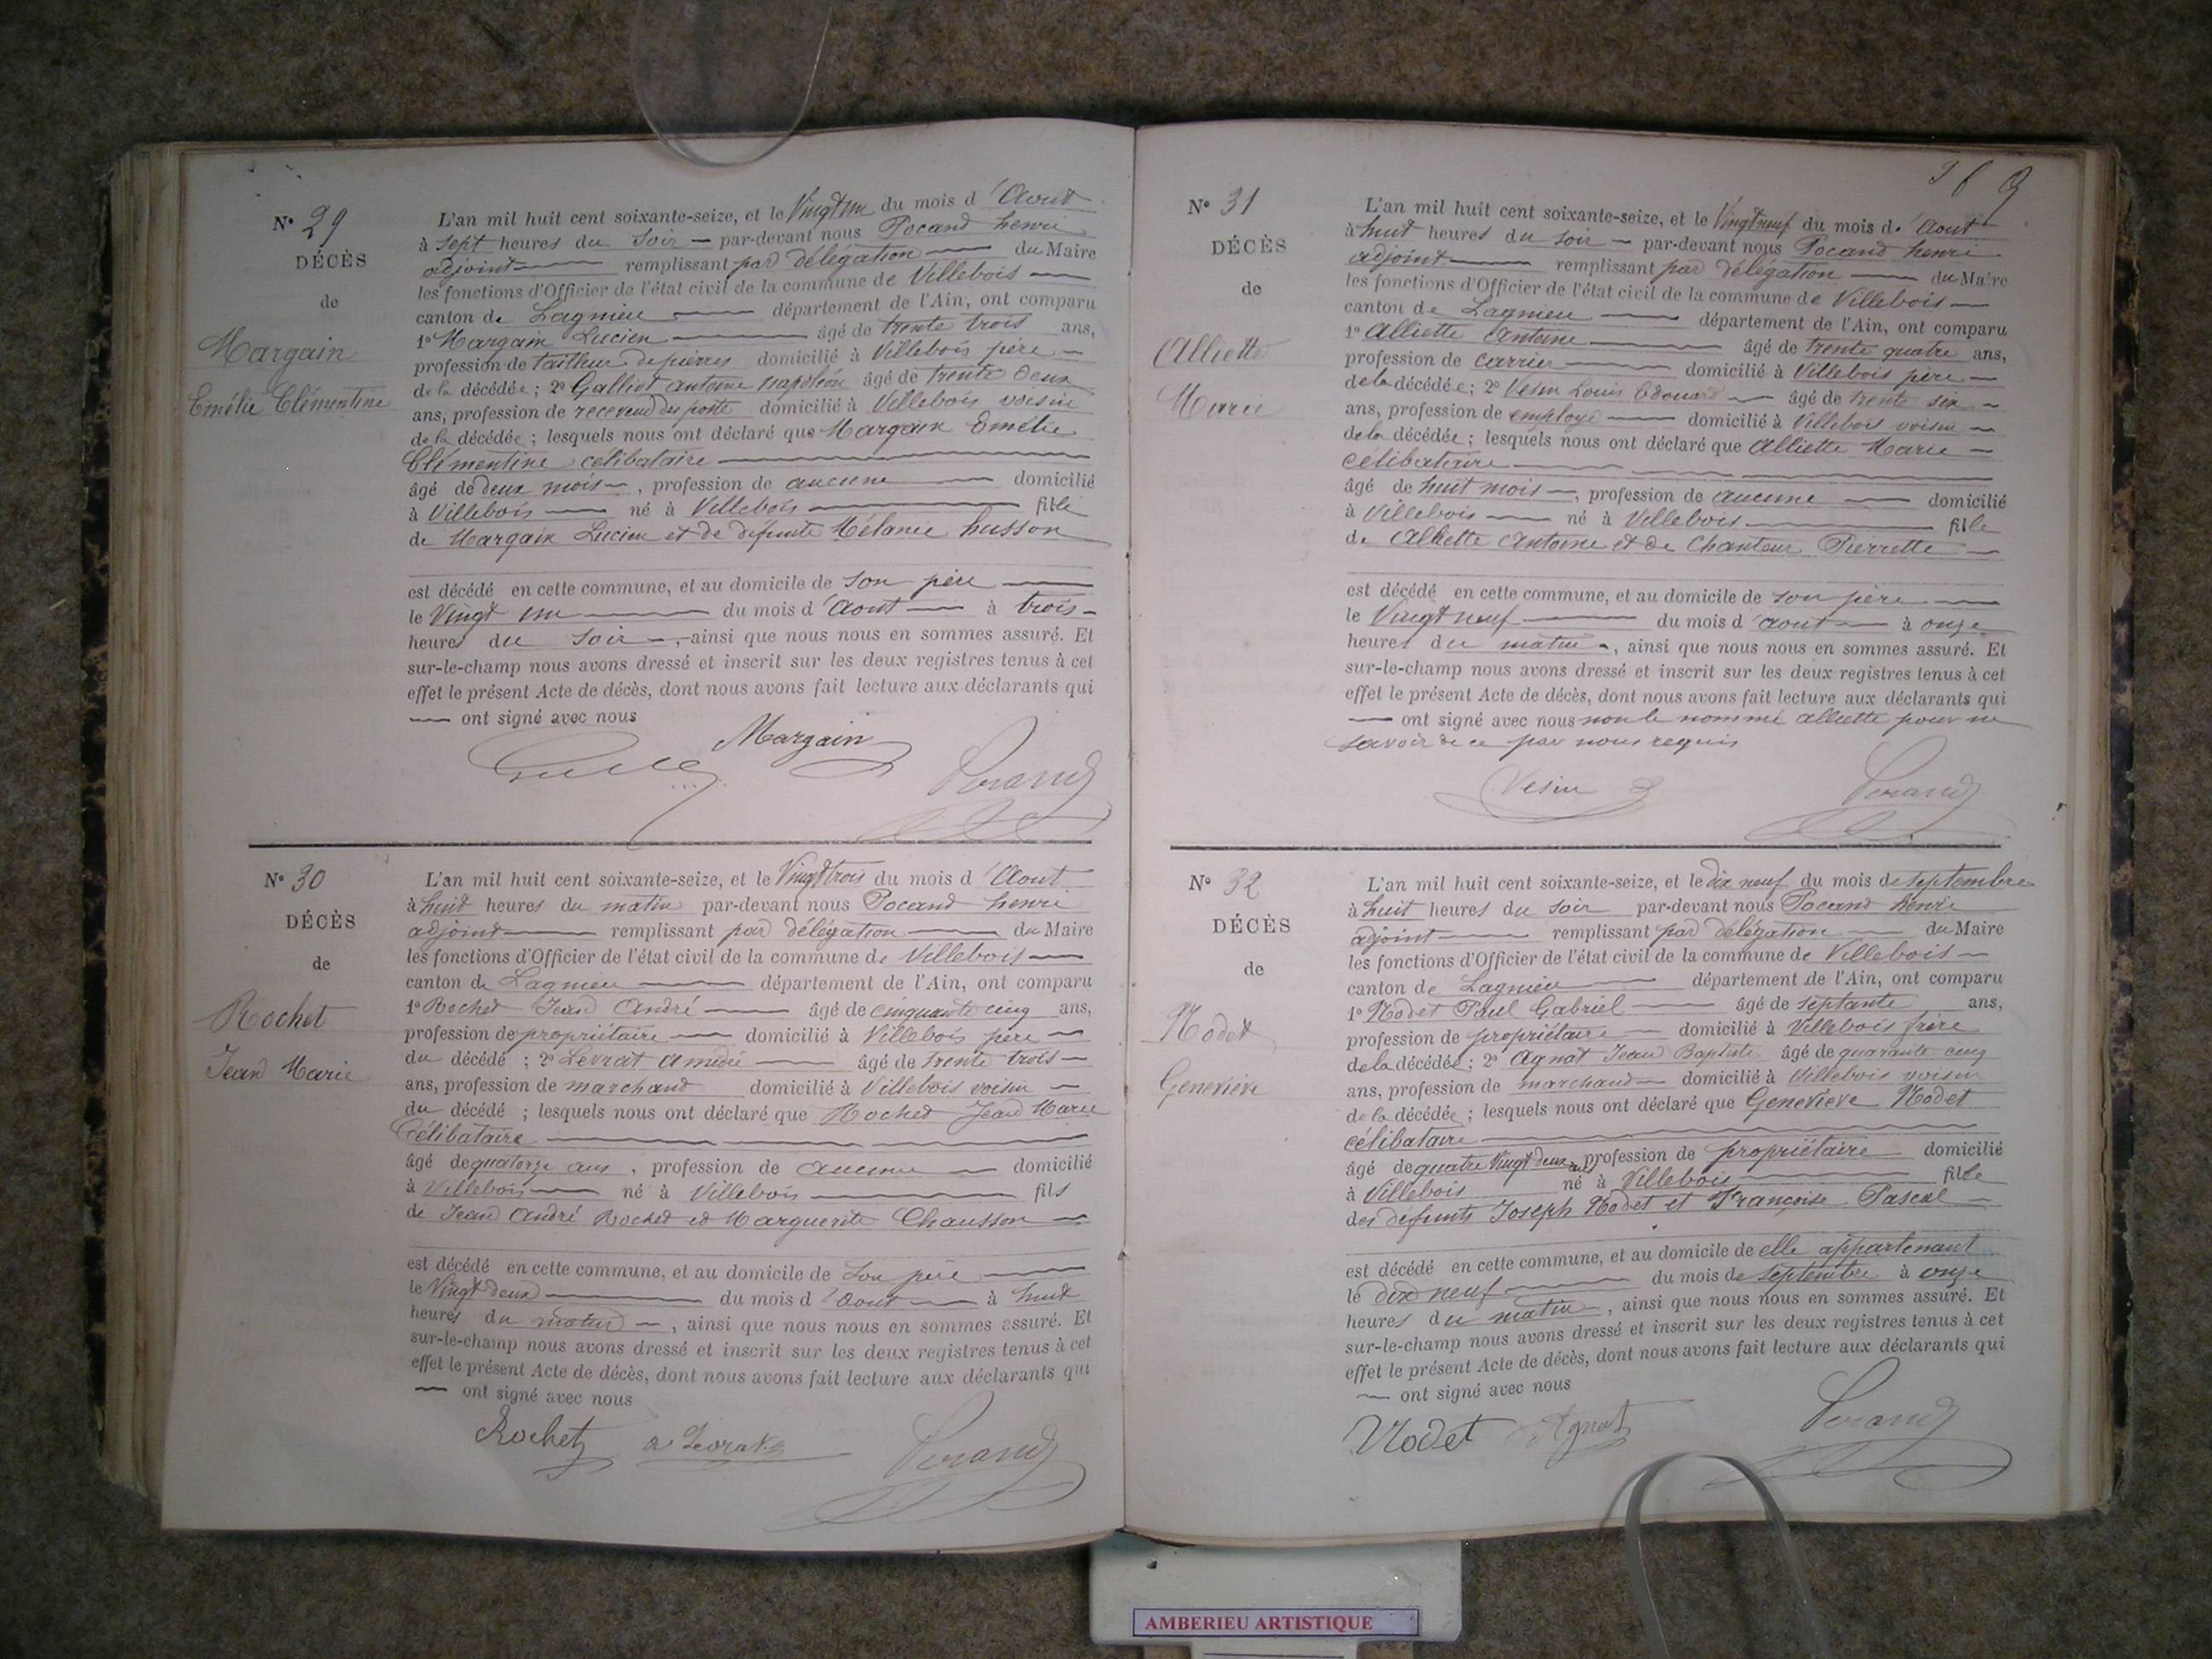 N° 29
DÉCÈS
de
Margain
Emélie Clémentine
L'an mil huit cent soixante-seize, et le Vingt un du mois d'Aout
à sept heures du soir — par-devant nous Pocand henri
adjoint — remplissant par délégation — du Maire
les fonctions d'Officier de l'état civil de la commune de Villebois —
canton de Lagnieu — département de l'Ain, ont comparu
1° Margain Lucien — âgé de trente trois ans,
profession de tailleur de pierres domicilié à Villebois père —
de la décédée ; 2° Galliot antoine napoléon âgé de trente deux
ans, profession de receveur des poste domicilié à Villebois voisin
de la décédée ; lesquels nous ont déclaré que Margain Emélie
Clémentine celibataire —
âgé de deux mois —, profession de aucune — domicilié
à Villebois — né à Villebois — fille
de Margain Lucien et de défunte Mélanie husson
est décédé en cette commune, et au domicile de son père —
le Vingt un — du mois d'Aout — à trois —
heures du soir —, ainsi que nous nous en sommes assuré. Et
sur-le-champ nous avons dressé et inscrit sur les deux registres tenus à cet
effet le présent Acte de décès, dont nous avons fait lecture aux déclarants qui
— ont signé avec nous
Margain
N° 30
DÉCÈS
de
Rochet
Jean Marie
L'an mil huit cent soixante-seize, et le Vingt trois du mois d'Aout
à huit heures du matin par-devant nous Pocand henri
adjoint — remplissant par délégation — du Maire
les fonctions d'Officier de l'état civil de la commune de Villebois —
canton de Lagnieu — département de l'Ain, ont comparu
1° Rochet Jean André — âgé de cinquante cinq ans,
profession de propriétaire — domicilié à Villebois père —
du décédé ; 2° Levrat Amédée — âgé de trente trois —
ans, profession de marchand domicilié à Villebois voisin —
du décédé ; lesquels nous ont déclaré que Rochet Jean Marie
Célibataire —
âgé de quatorze ans, profession de aucune — domicilié
à Villebois — né à Villebois — fils
de Jean André Rochet et Marguerite Chausson —
est décédé en cette commune, et au domicile de son père —
le Vingt deux — du mois d'Aout — à huit
heures du matin —, ainsi que nous nous en sommes assuré. Et
sur-le-champ nous avons dressé et inscrit sur les deux registres tenus à cet
effet le présent Acte de décès, dont nous avons fait lecture aux déclarants qui
— ont signé avec nous
Rochet a Levrat
N° 31
DÉCÈS
de
Alliette
Marie
L'an mil huit cent soixante-seize, et le Vingt neuf du mois d'Aout
à huit heures du soir — par-devant nous Pocand henri
adjoint — remplissant par délégation — du Maire
les fonctions d'Officier de l'état civil de la commune de Villebois —
canton de Lagnieu — département de l'Ain, ont comparu
1° Alliette Antoine — âgé de trente quatre ans,
profession de carrier — domicilié à Villebois père —
de la décédée ; 2° Vesin Louis Edouard — âgé de trente six —
ans, profession de employé — domicilié à Villebois voisin —
de la décédée ; lesquels nous ont déclaré que Alliette Marie —
célibataire —
âgé de huit mois —, profession de aucune — domicilié
à Villebois — né à Villebois — fille
de Alliette Antoine et de Chanteur Pierrette —
est décédé en cette commune, et au domicile de son père —
le Vingt neuf — du mois d'aout — à onze
heures du matin —, ainsi que nous nous en sommes assuré. Et
sur-le-champ nous avons dressé et inscrit sur les deux registres tenus à cet
effet le présent Acte de décès, dont nous avons fait lecture aux déclarants qui
— ont signé avec nous non le nommé alliette pour ne
savoir de ce par nous requis
Vesin
N° 32
DÉCÈS
de
Nodet
Geneviève
L'an mil huit cent soixante-seize, et le dix neuf du mois de septembre
à huit heures du soir par-devant nous Pocand henri
adjoint — remplissant par délégation — du Maire
les fonctions d'Officier de l'état civil de la commune de Villebois —
canton de Lagnieu — département de l'Ain, ont comparu
1° Nodet Paul Gabriel — âgé de septante ans,
profession de propriétaire — domicilié à Villebois frère
de la décédée ; 2° Agnat Jean Baptiste âgé de quarante cinq
ans, profession de marchand — domicilié à Villebois voisin
de la décédée ; lesquels nous ont déclaré que Genevieve Nodet
célibataire —
âgé de quatre Vingt deux ans, profession de propriétaire domicilié
à Villebois né à Villebois — fille
des défunts Joseph Nodet et Françoise Pascal —
est décédé en cette commune, et au domicile de elle appartenant
le dix neuf — du mois de septembre à onze
heures du matin —, ainsi que nous nous en sommes assuré. Et
sur-le-champ nous avons dressé et inscrit sur les deux registres tenus à cet
effet le présent Acte de décès, dont nous avons fait lecture aux déclarants qui
— ont signé avec nous
Nodet Agnat
AMBERIEU ARTISTIQUE